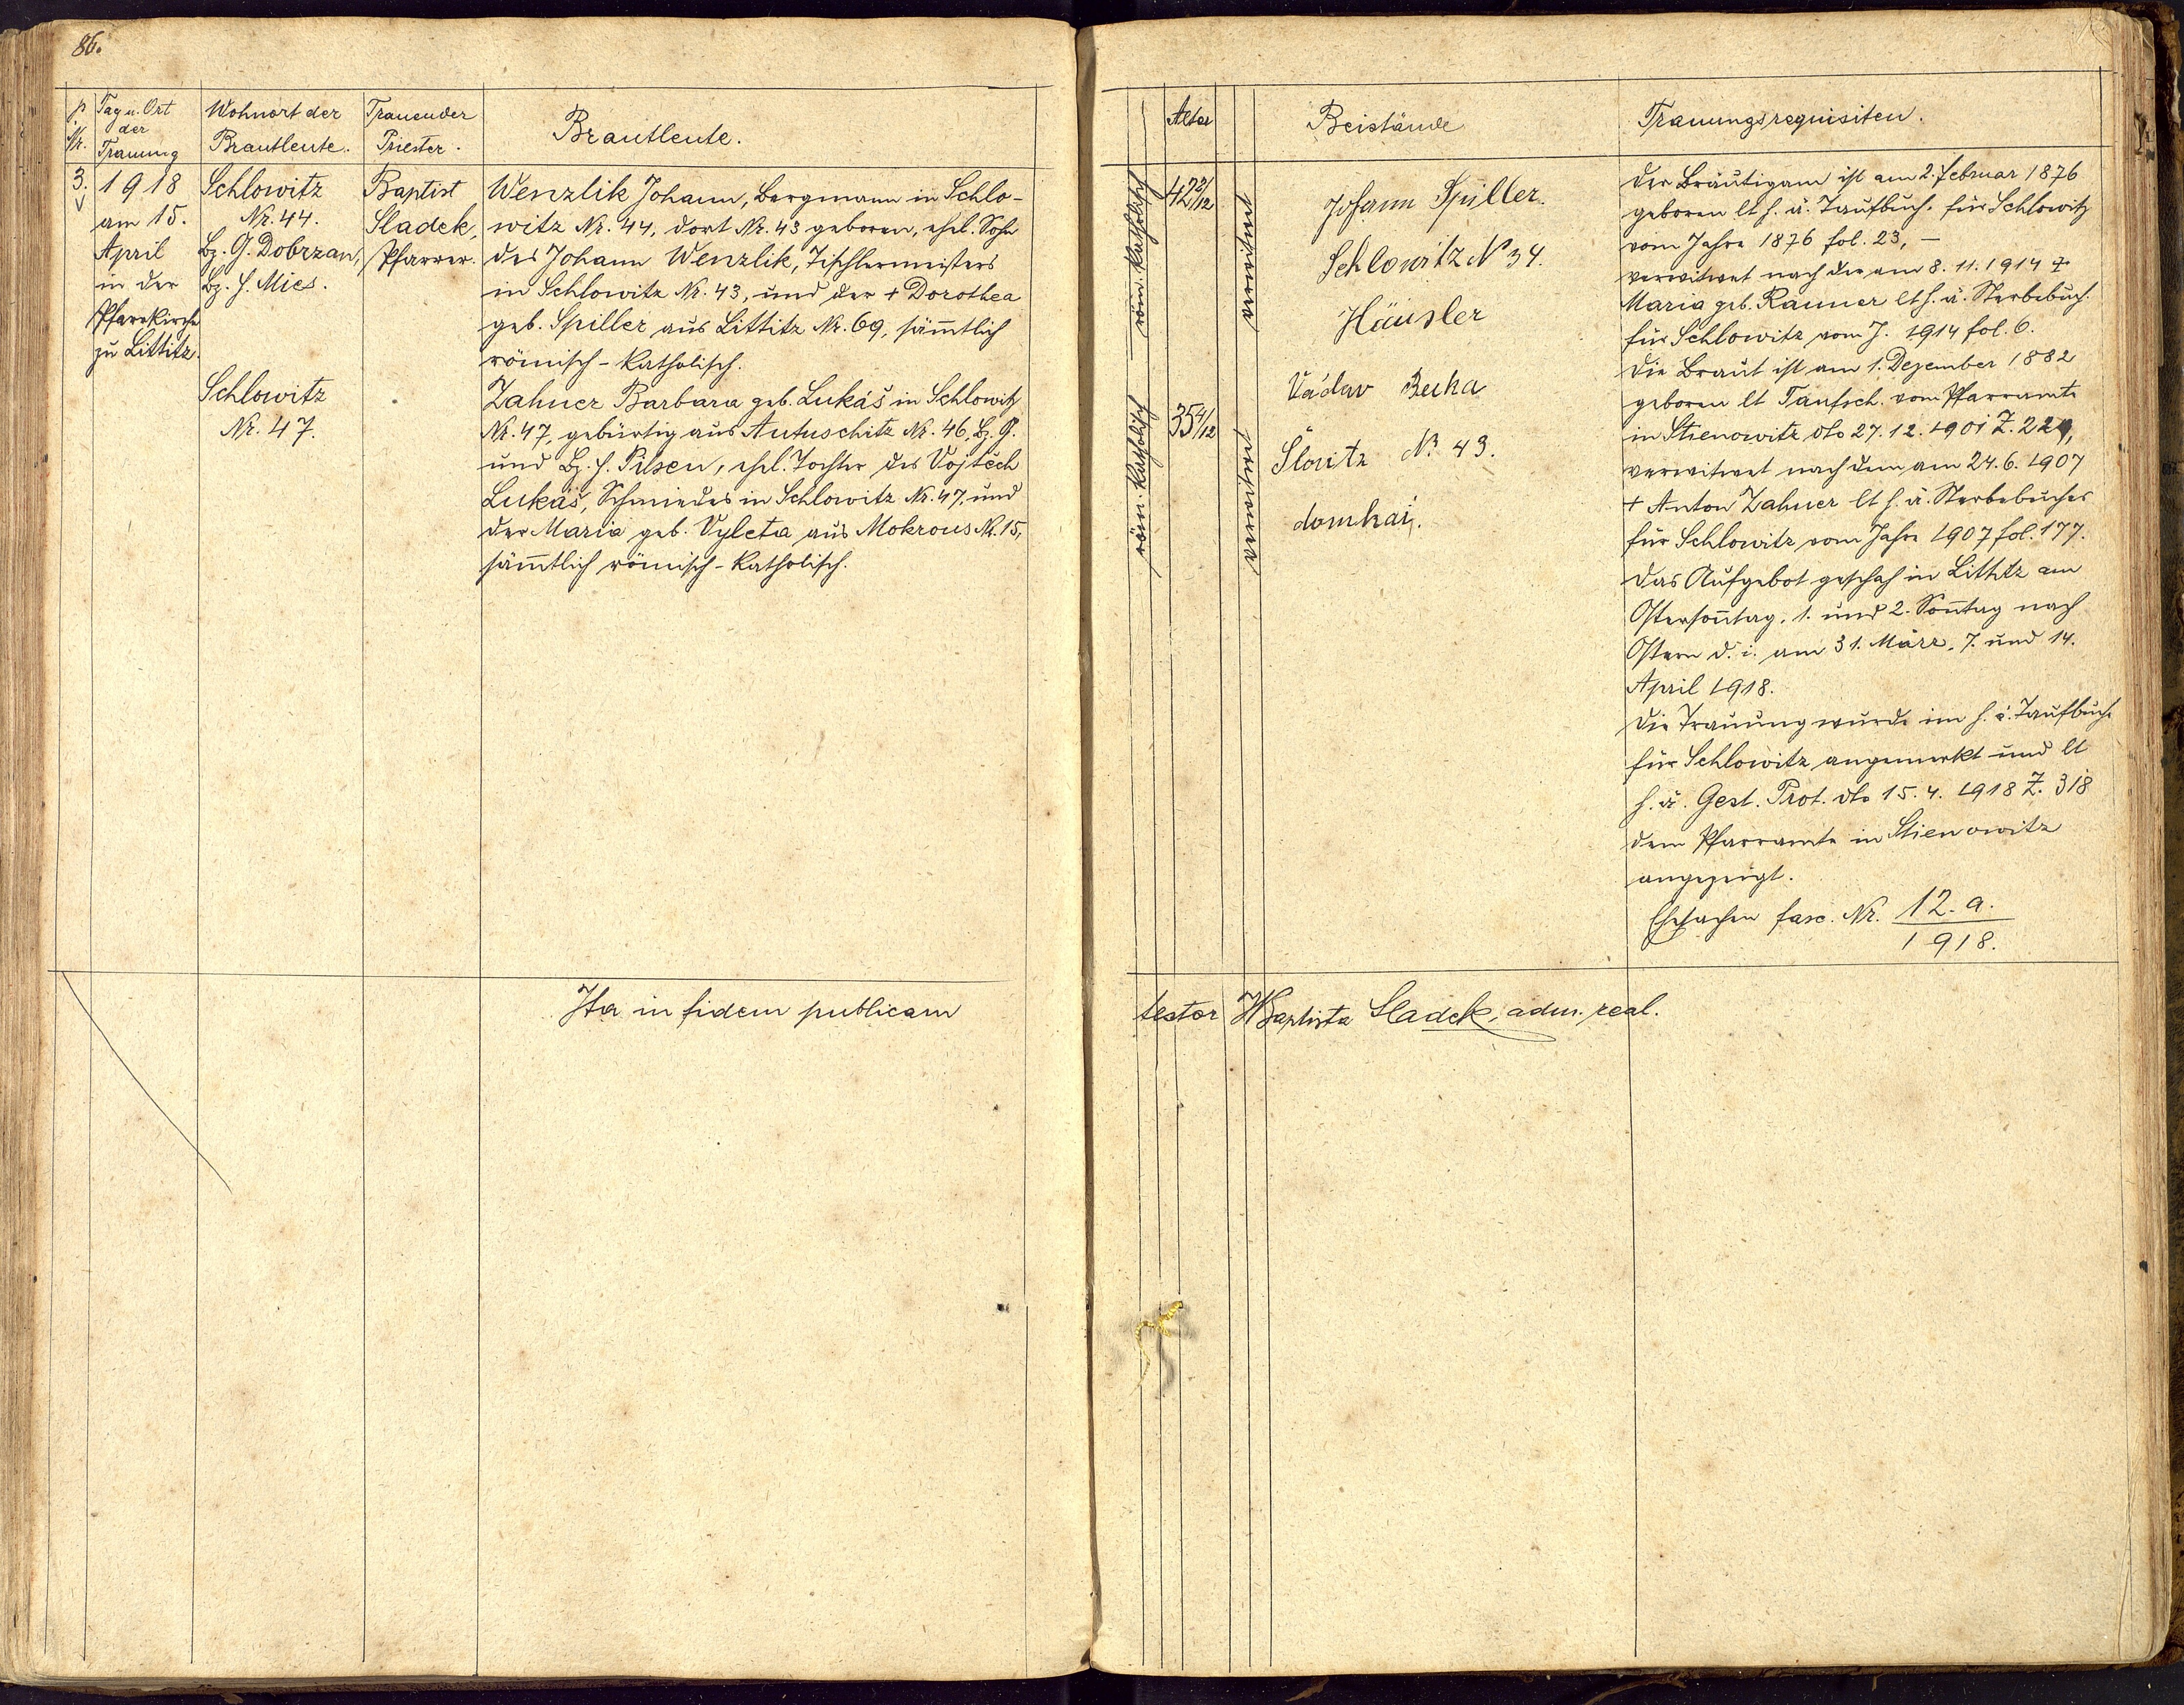 86.
p. Nr.
Tag u. Ort
der
Trauung
Wohnort der
Brautleute.
Trauender
Priester.
Brautleute.
3.
1918
am 15.
April
in der
Pfarrkirche
zu Littitz.
Schlowitz
Nr. 44.
Bz. G. Dobrzan,
Bz. H. Mies.
Schlowitz
Nr. 47.
Baptist
Sladek,
Pfarrer.
Wenzlik Johann, Bergmann in Schlo-
witz Nr. 44, dort Nr. 43 geboren, ehel. Sohn
des Johann Wenzlik, Tischlermeisters
in Schlowitz Nr. 43, und der + Dorothea
geb. Spiller aus Littitz Nr. 69, sämtlich
römisch-katholisch.
Zahner Barbara geb. Lukáš in Schlowitz
Nr. 47, gebürtig aus Autuschitz Nr. 46, Bz. G.
und Bz. H. Pilsen, ehel. Tochter des Vojtěch
Lukáš, Schmiedes in Schlowitz Nr. 47, und
der Maria geb. Vyleta aus Mokrous Nr. 15,
sämtlich römisch-katholisch.
Ita in fidem publicam
Alter
Beistände
Trauungsrequisiten.
röm. katholisch
42 2/12
verwitwet
röm. katholisch
35 4/12
verwitwet
Johann Spiller.
Schlowitz N 34.
Häusler
Václav Becha
Šlovitz N 43.
domkař.
Der Bräutigam ist am 2. Februar 1876
geboren lt h. ä. Taufbuch. für Schlowitz
vom Jahre 1876 fol. 23, –
verwitwet nach der am 8. 11. 1914 +
Maria geb. Rauner lt h. ä. Sterbebuch.
für Schlowitz vom J. 1914 fol. 6.
Die Braut ist am 1. Dezember 1882
geboren lt Taufsch. vom Pfarramte
in Stienowitz dto 27. 12. 1901 Z. 224,
verwitwet nach dem am 24. 6. 1907
+ Anton Zahner lt h. ä. Sterbebuches
für Schlowitz vom Jahre 1907 fol. 177.
Das Aufgebot geschah in Littitz am
Ostersontag, 1. und 2. Sontag nach
Ostern d. i. am 31. März, 7. und 14.
April 1918.
Die Trauung wurde im h. ä. Taufbuche
für Schlowitz angemerkt und lt
h. ä. Gest. Prot. dto 15. 4. 1918 Z. 318
dem Pfarramte in Stienowitz
angezeigt.
Ehesachen fasc. Nr. 12. a.
1918.
testor JBaptista Sladek, adm. real.